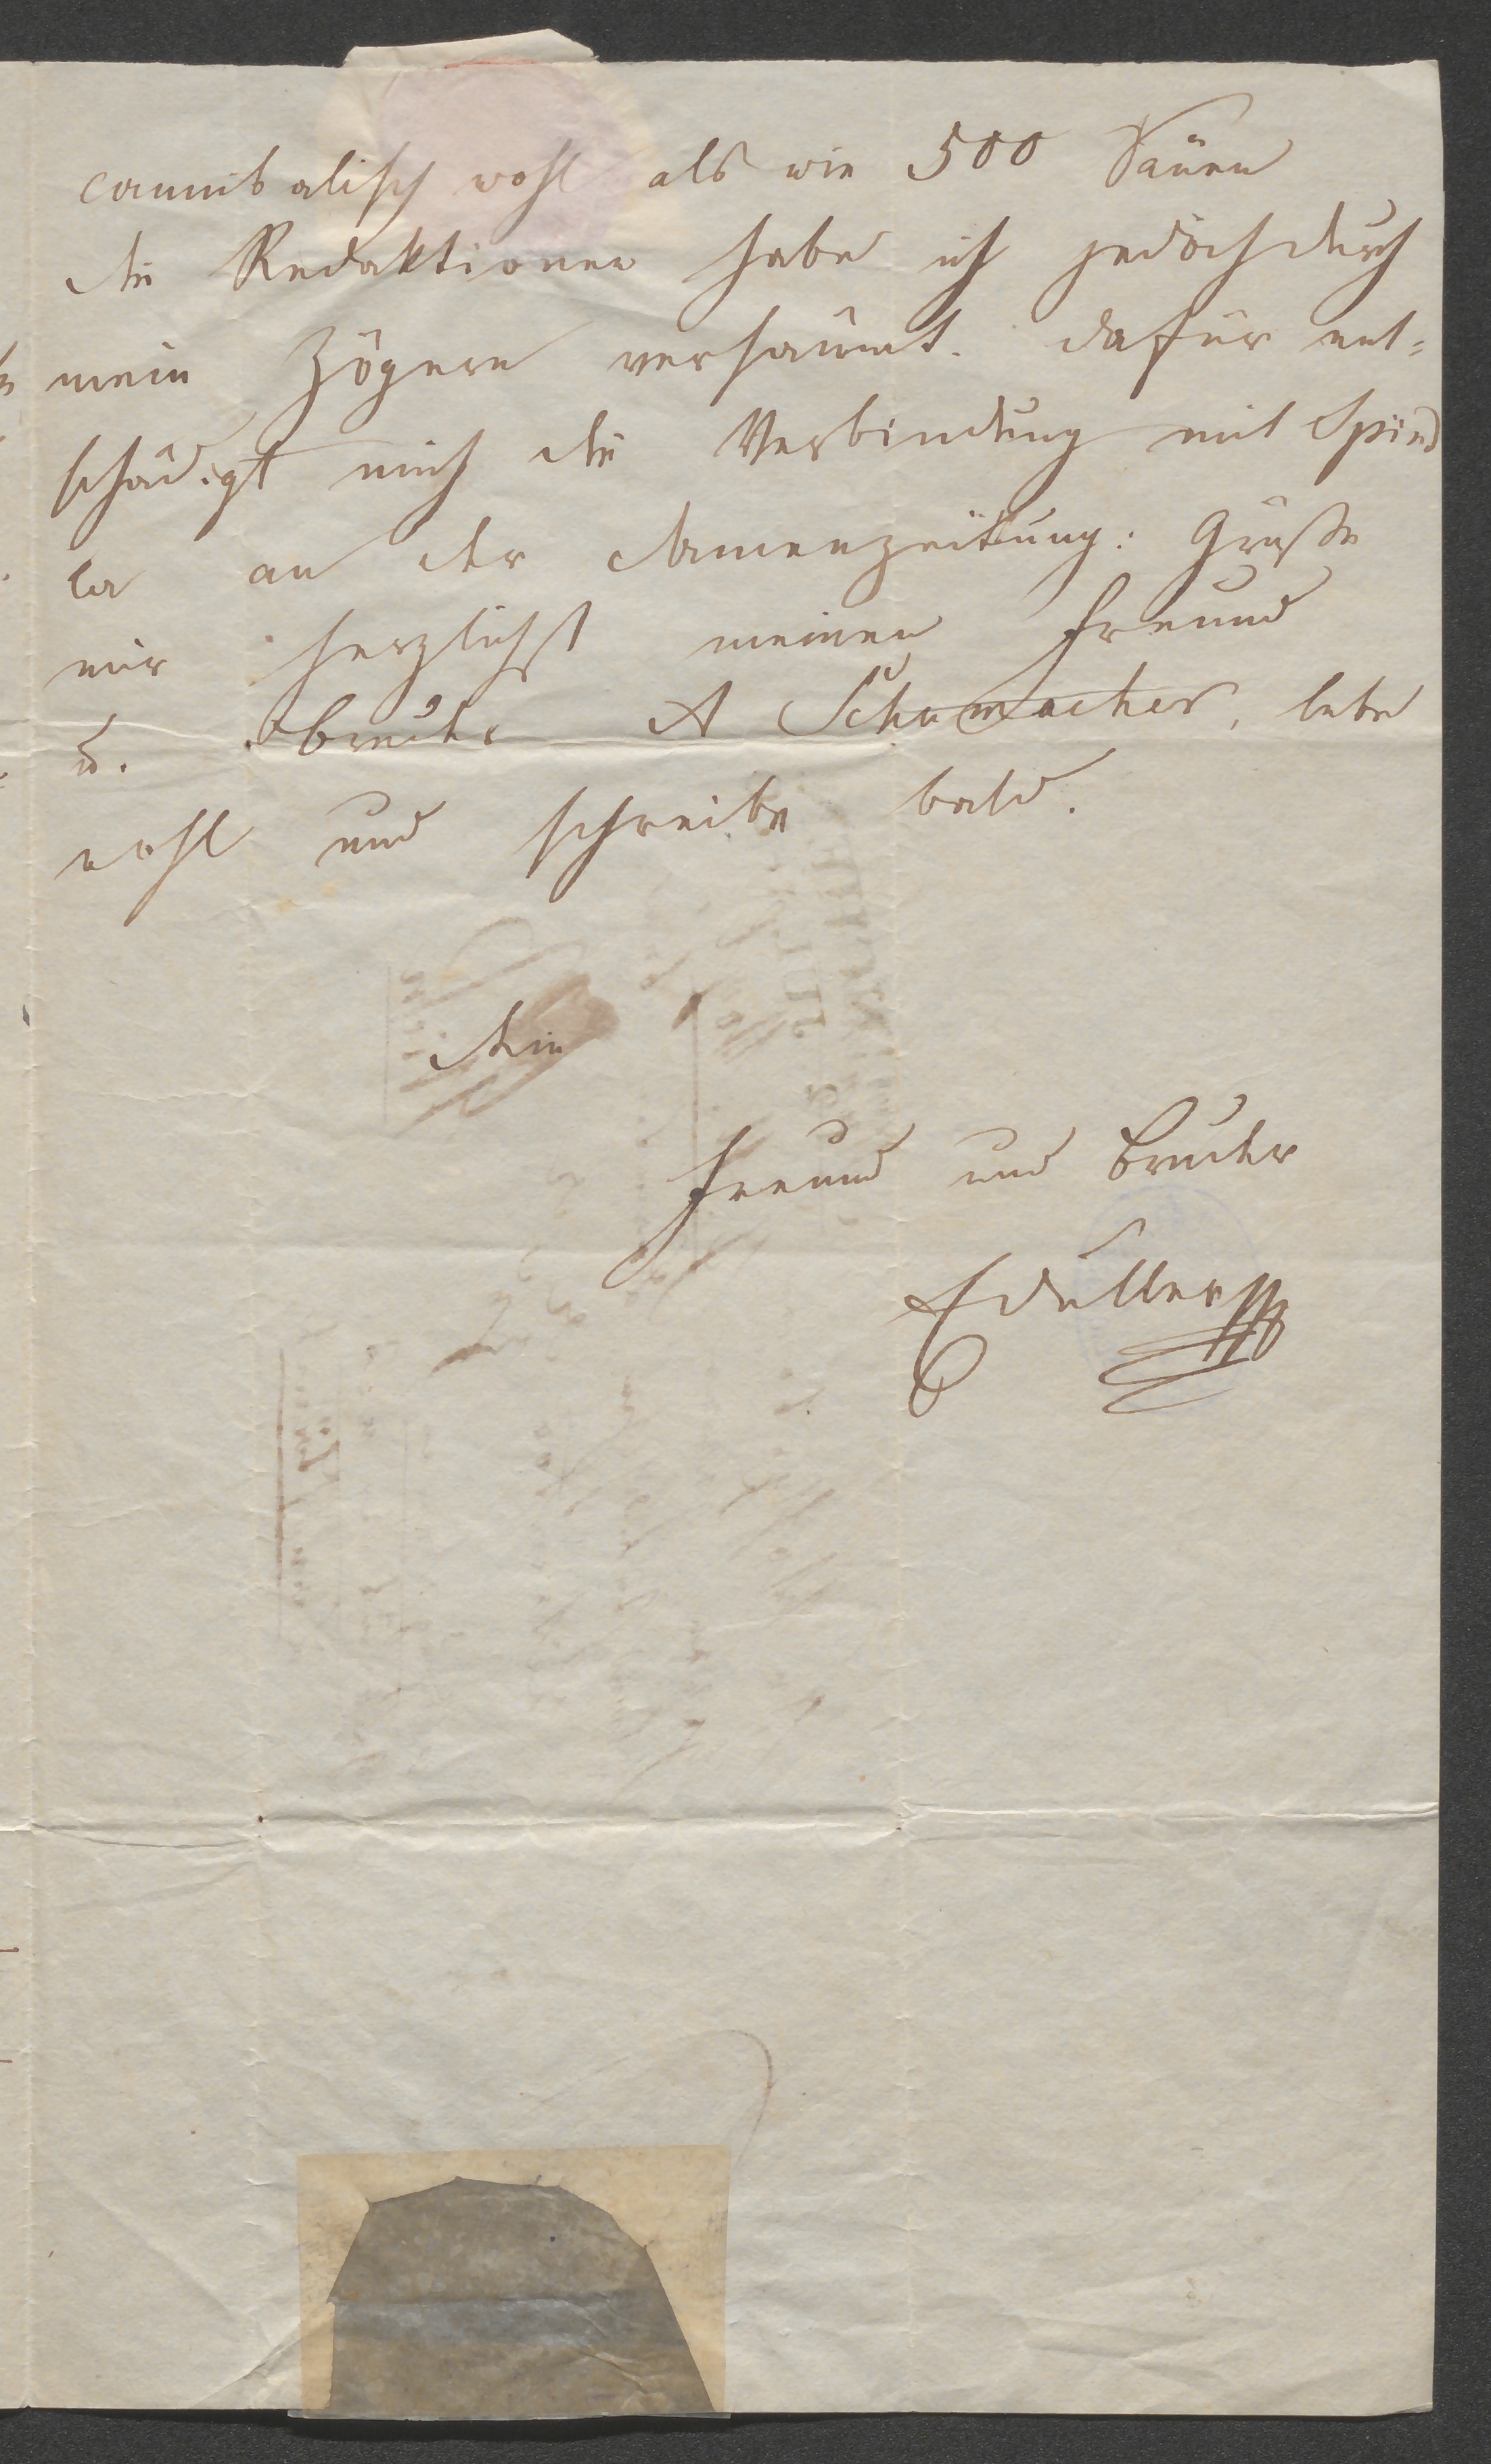 cannibalisch wohl als wie 500 Säuen
die Redaktionen habe ich jedoch durch
mein Zögern versäumt. dafür ent=
schädigt mich die Verbindung mit Spind
ler an der Damenzeitung: Grüße
mir herzlichst meinen Freund
u. Bruder A Schumacher, lebe
wohl und schreibe bald.
Dein
Freund und Bruder
EDuller